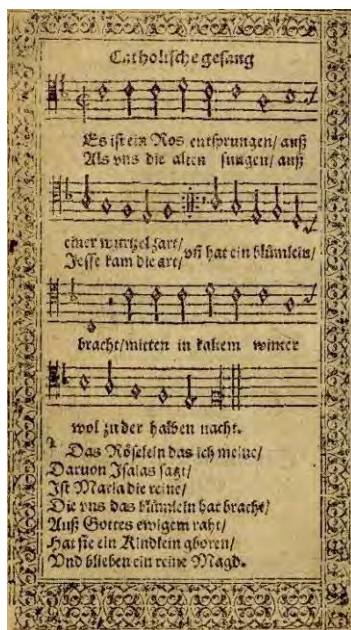 Catholische gesang
Es ist ein Ros entsprungen/ auß
Als vns die alten sungen/ auß
einer wurtzel zart/ vñ hat ein blümlein/
Jesse kam die art/
bracht/ mitten in kaltem winter
wol zu der halben nacht.
2 Das Röselein das ich meine/
Daruon Isaias sagt/
Ist Maria die reine/
Die vns das blümlein hat bracht/
Auß Gottes ewigem raht/
Hat sie ein Kindlein gboren/
Vnd blieben ein reine Magd.